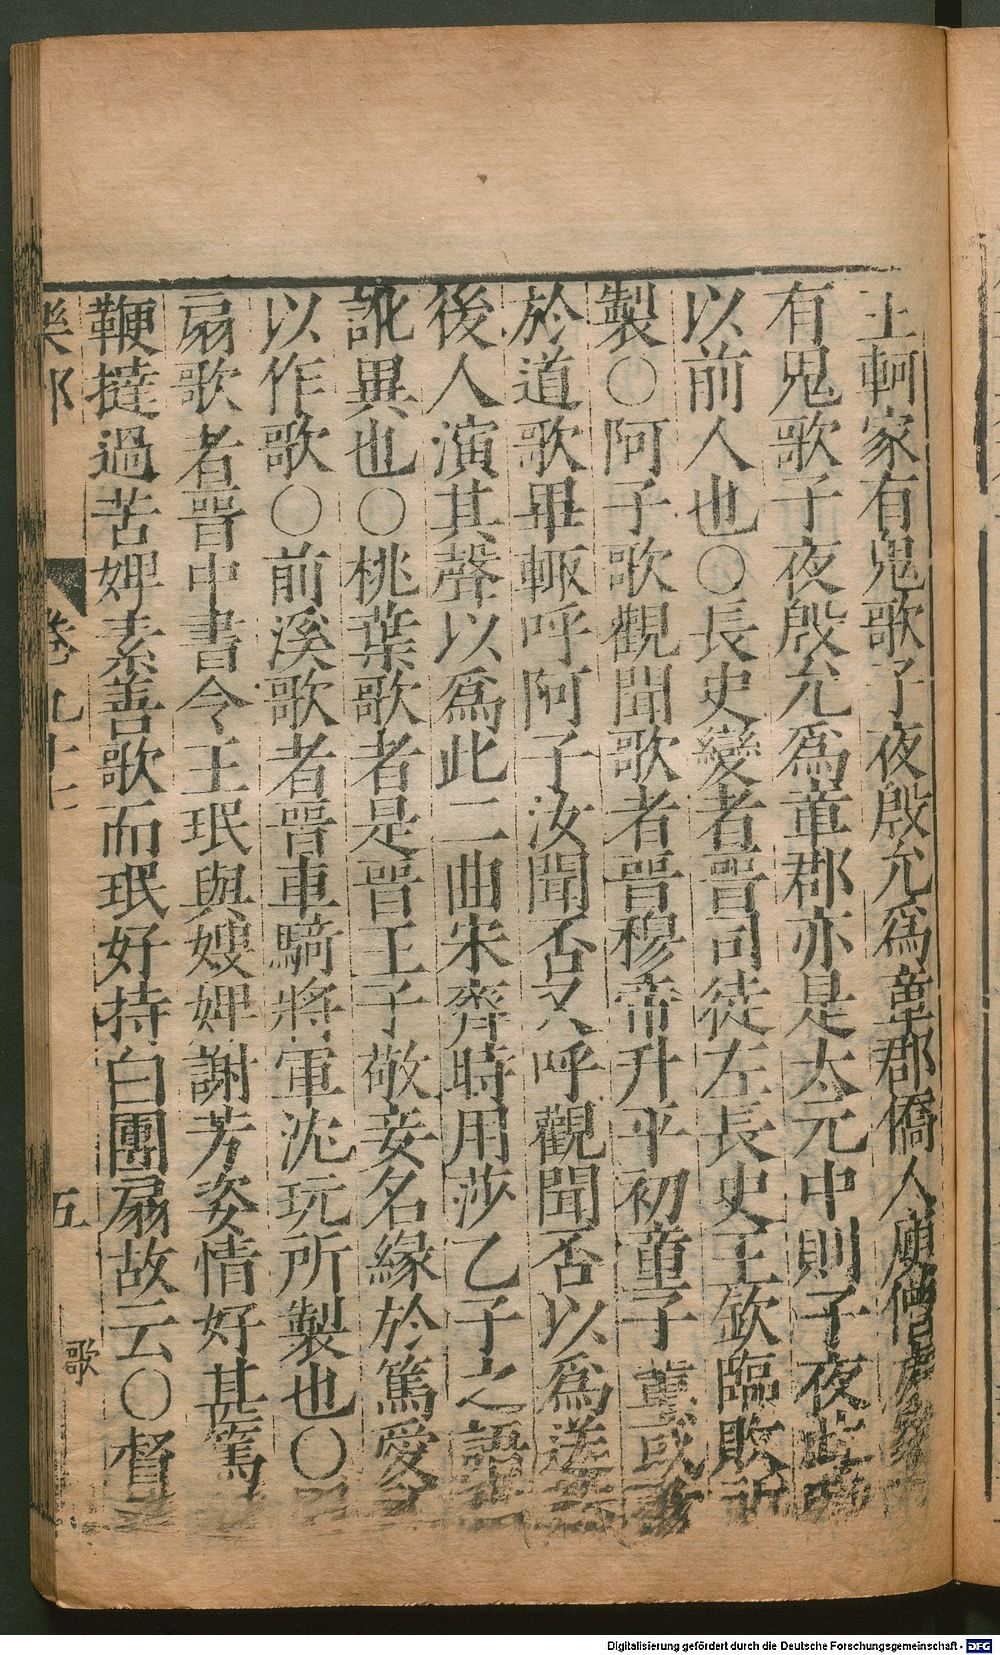 王軻家有鬼歌子夜殷允爲章郡僑人庾僧虔家亦
有鬼歌子夜殷允爲章郡亦是太元中則子夜此時
以前人也○長史變者晉司徒左長史王欽臨敗所
製○阿子歌觀聞歌者晉穆帝升平初童子輩或
於道歌畢輒呼阿子汝聞否又呼觀聞否以爲送
後人演其聲以爲此二曲宋齊時用莎乙子之語
訛異也○桃葉歌者是晉王子敬妾名緣於篤愛
以作歌○前溪歌者晉車騎將軍沈玩所製也○
扇歌者晉中書令王珉與嫂婢謝芳姿情好甚篤
鞭撻過苦婢素善歌而珉好持白團扇故云○督
樂部 卷九十七 五 歌
Digitalisierung gefördert durch die Deutsche Forschungsgemeinschaft - DFG